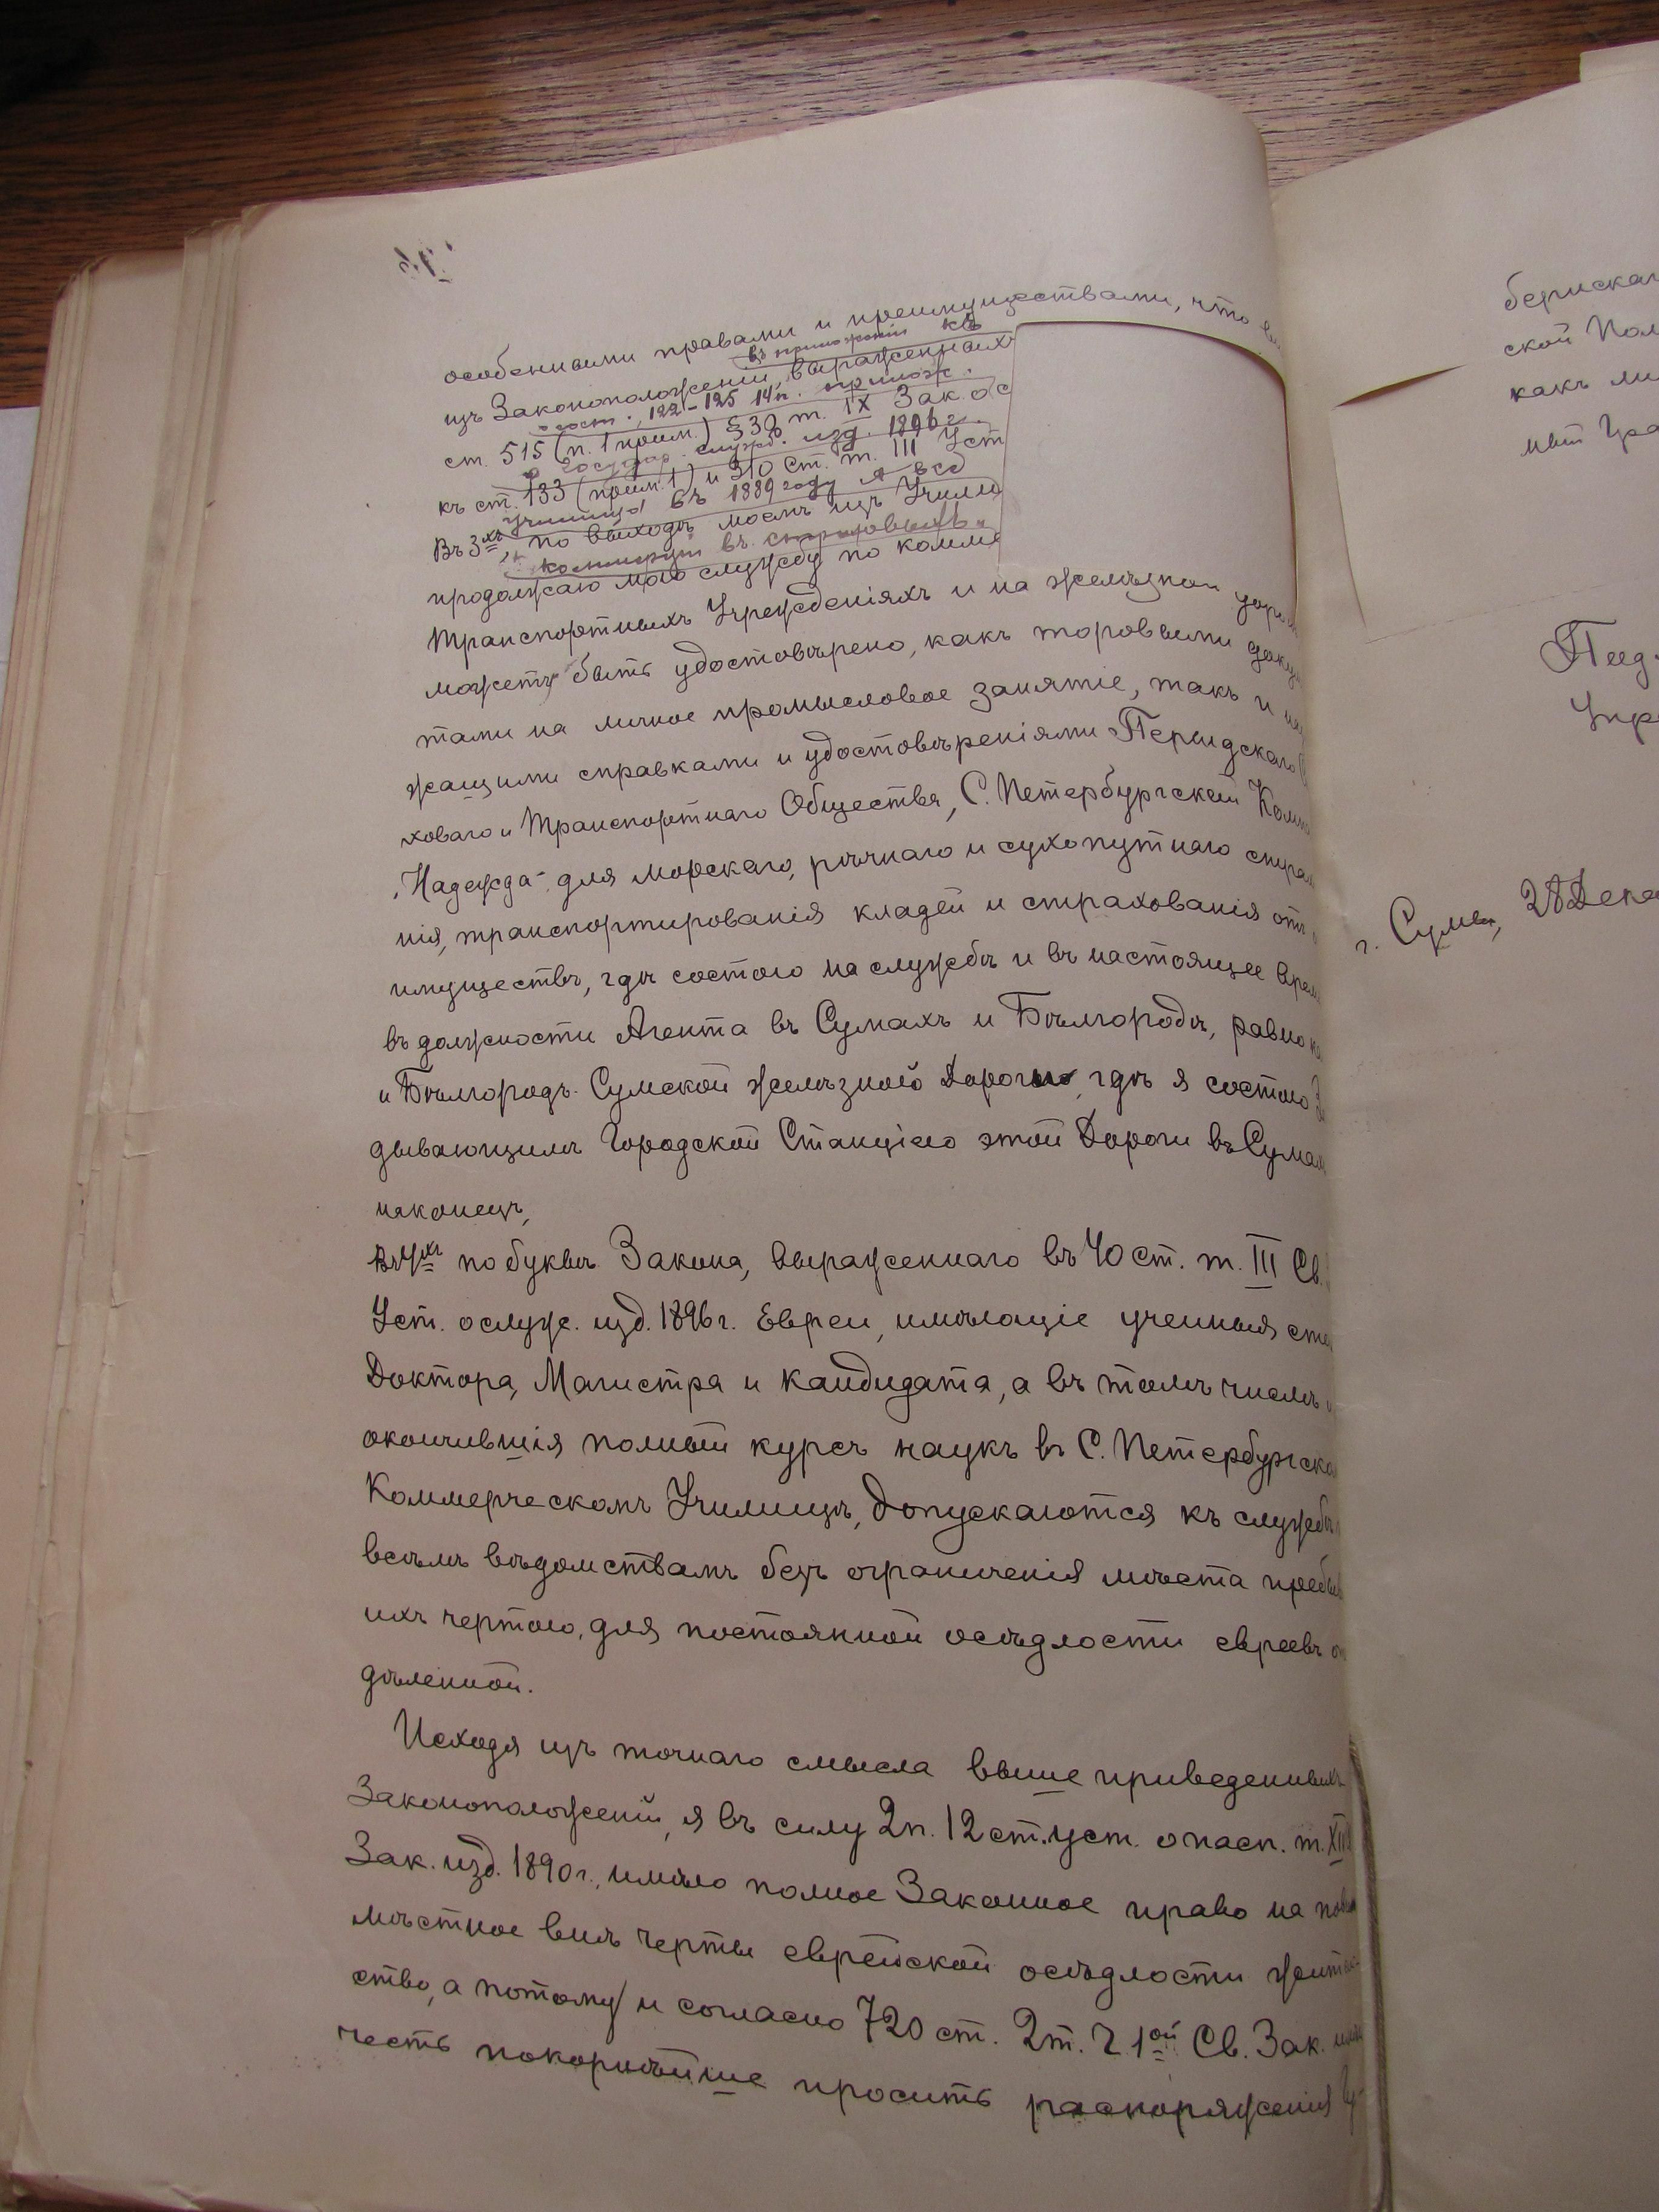 особенными правами и преимуществами, что
въ приложеніи къ
изъ Законоположеній, выраженныхъ
о сост. 122-125 14 п. прилож.
ст. 515 (п. 1 прим.) § 30 т. IX Зак. о с
о государ. служб. изд. 1896 г.
къ ст. 133 (прим. 1) и 310 ст. т. III Уст
Училища въ 1889 году я всё
Въ 3хъ, по выходѣ моемъ изъ Учили
въ страховыхъ
продолжаю мою службу по комме
транспортныхъ Учрежденіяхъ и на желѣзной доро
можетъ быть удостовѣрено, какъ торговыми доку
тами на личное промысловое занятіе, такъ и на
жащими справками и удостовѣреніями
ховаго и Транспортнаго Общества, С. Петербургской Комп
"Надежда" для морскаго, рѣчнаго и сухопутнаго страх
нія, транспортированія кладей и страхованія отъ
имуществъ, гдѣ состою на службѣ и въ настоящее врем
въ должности Агента въ Сумахъ и Бѣлгородѣ, равно к
и Бѣлгородъ-Сумской желѣзной Дорогою, гдѣ я состою За
дывающимъ Городской Станціею этой Дороги въ Сумах
наконецъ,
Въ 4хъ по буквѣ Закона, выраженнаго въ 40 ст. т. III Св.
Уст. о служ. изд. 1896 г. Евреи, имѣющіе ученыя сте
Доктора, Магистра и Кандидата, а въ томъ числѣ и
окончившія полный курсъ наукъ въ С. Петербургско
Коммерческомъ Училищѣ, допускаются къ службѣ
всѣмъ вѣдомствамъ безъ ограниченія мѣста пребыв
ихъ чертою, для постоянной осѣдлости евреевъ оп
дѣленной.
Исходя изъ точнаго смысла выше приведенныхъ
Законоположеній, я въ силу 2 п. 12 ст. уст. о пасп. т. XIV
Зак. изд. 1890 г., имѣю полное Законное право на повсе
мѣстное внѣ черты еврейской осѣдлости житель
ство, а потому и согласно 720 ст. 2 т. ч. 1ой Св. Зак. имѣю
честь покорнѣйше просить распоряженія Гу
бернскаг
ской Пол
какъ ли
мѣт Гра
Упр
г. Сумы, 28 Дека